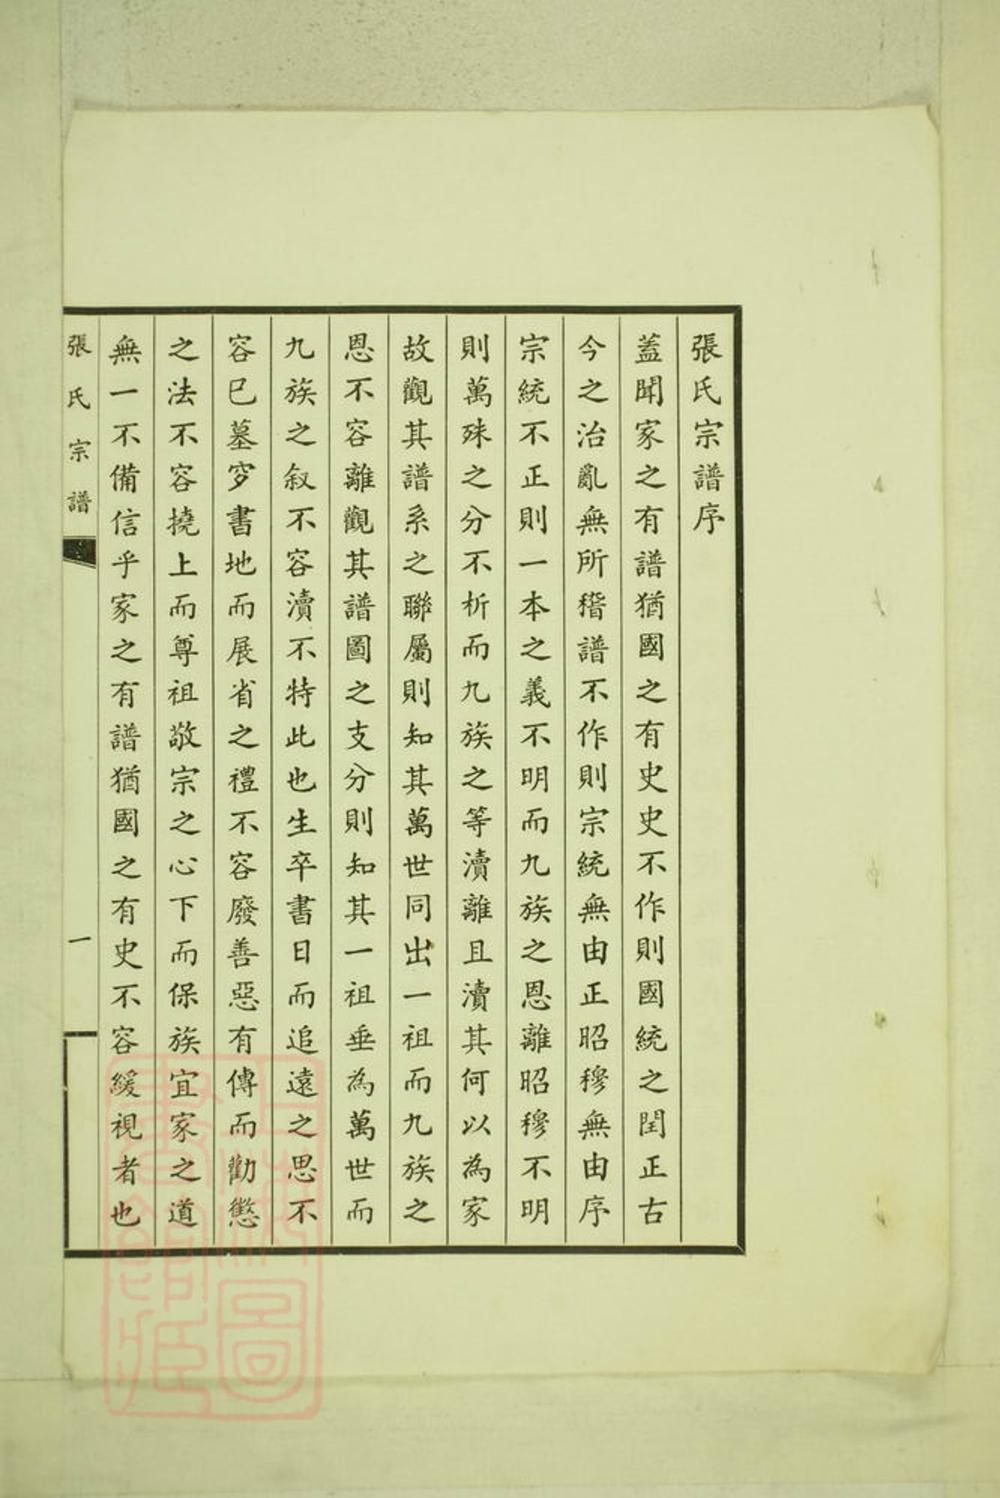 張氏宗譜序
蓋聞家之有譜猶國之有史史不作則國統之閏正古
今之治亂無所稽譜不作則宗統無由正昭穆無由序
宗統不正則一本之義不明而九族之恩離昭穆不明
則萬殊之分不析而九族之等瀆離且瀆其何以為家
故觀其譜系之聯屬則知其萬世同出一祖而九族之
恩不容離觀其譜圖之支分則知其一祖垂為萬世而
九族之叙不容瀆不特此也生卒書日而追遠之思不
容已墓穸書地而展省之禮不容廢善惡有傳而勸懲
之法不容撓上而尊祖敬宗之心下而保族宜家之道
無一不備信乎家之有譜猶國之有史不容緩視者也
張氏宗譜
一